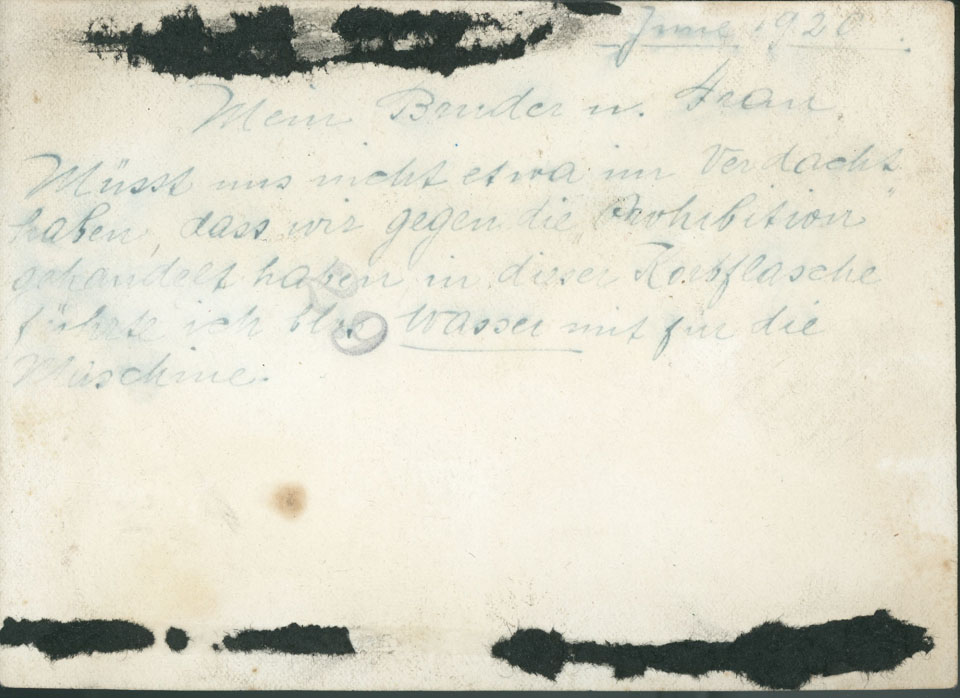 June 1920.
Mein Bruder u. Frau
Müsst uns nicht etwa im Verdacht
haben, dass wir gegen die „Prohibition“
gehandelt haben, in dieser Korbflasche
führte ich blos Wasser mit für die
Maschine.